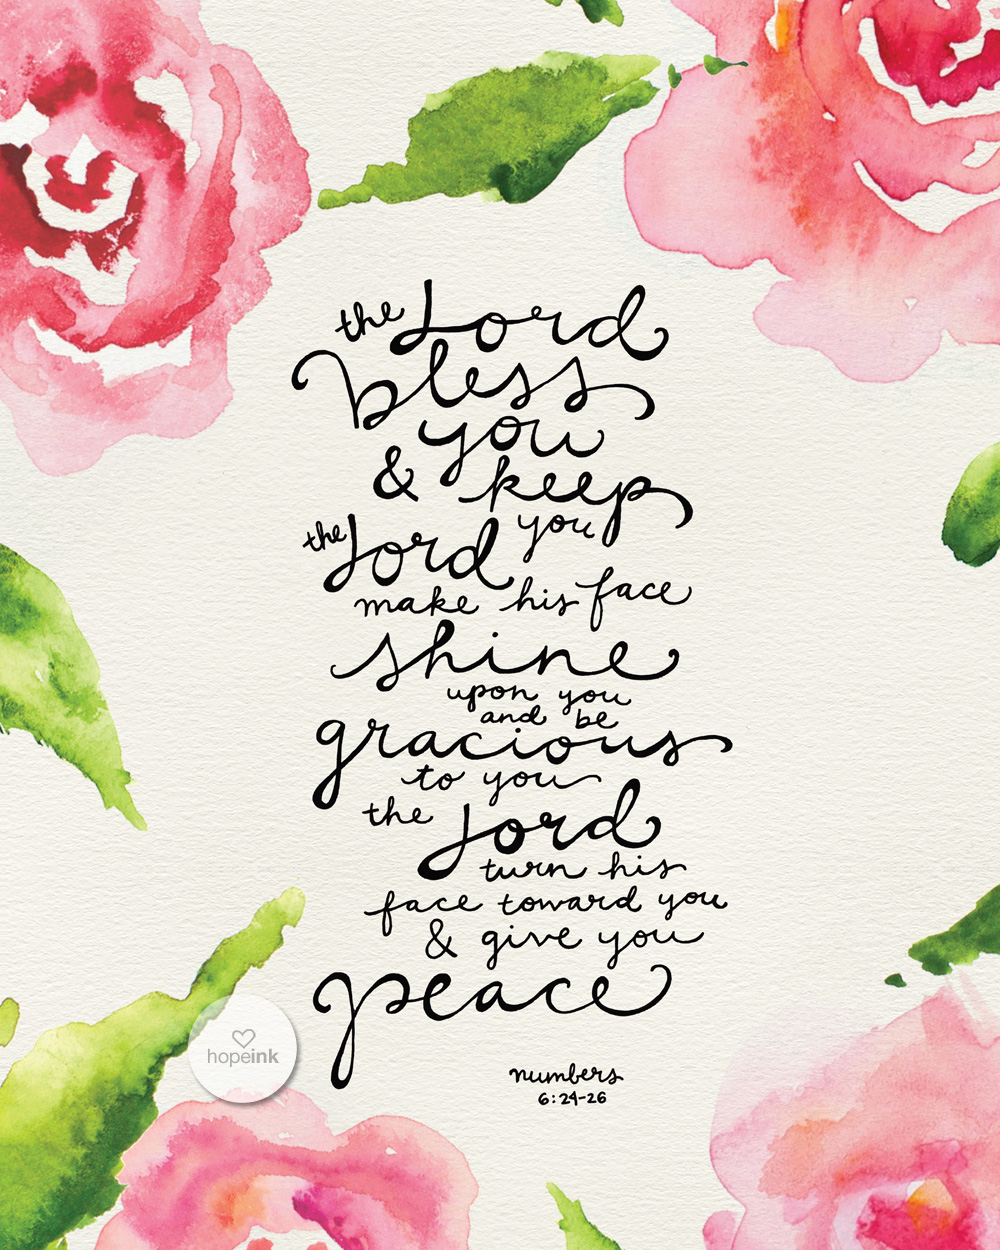 the Lord
bless
you
& keep
you
the Lord
make his face
shine
upon you
and be
gracious
to you
the Lord
turn his
face toward you
& give you
peace
numbers
6:24-26
hopeink